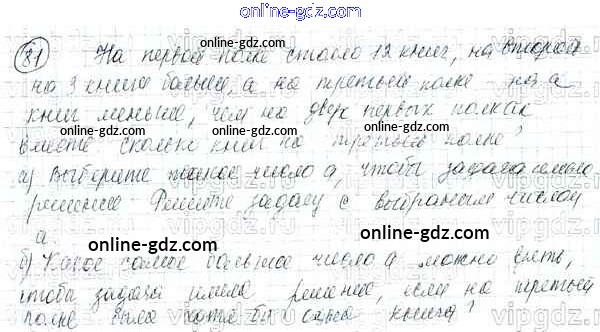 online-gdz.com
81 На первой полке стояло 12 книг, на второй
на 3 книги больше, а на третьей полке на а
книг меньше, чем на двух первых полках
вместе сколько книг на третьей полке?
online-gdz.com
а) Выберите такое число а, чтобы задача имела
решение Решите задачу с выбраным числом
а.
online-gdz.com
б) Какое самое большое число а можно взять,
чтобы задача имела решение, если на третьей
полке была хотя бы одна книга?
online-gdz.com